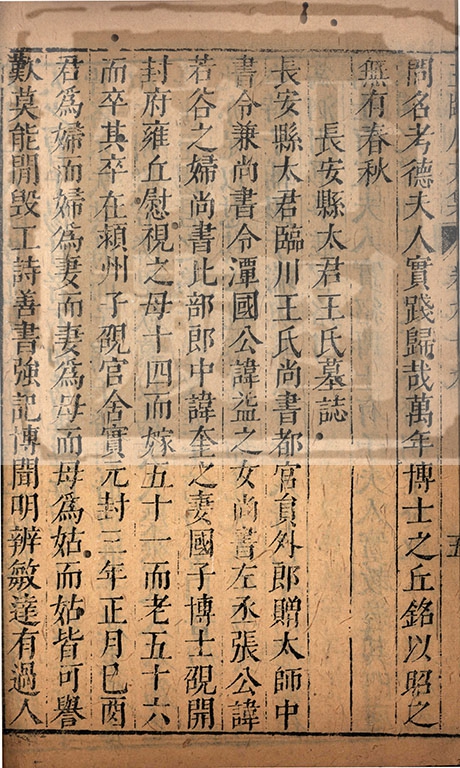 問名考德夫人實踐歸哉萬年博士之丘銘以昭之
無有春秋
長安縣太君王氏墓誌
長安縣太君臨川王氏尚書都官員外郎贈太師中
書令兼尚書令潭國公諱益之女尚書左丞張公諱
若谷之婦尚書比部郎中諱奎之妻國子博士覗開
封府雍丘尉視之母十四而嫁五十一而老五十六
而卒其卒在潁州子覗官舍實元封三年正月巳酉
君爲婦而婦爲妻而妻爲母而母爲姑而姑皆可譽
歎莫能間毀工詩善書強記博聞明辨敏達有過人